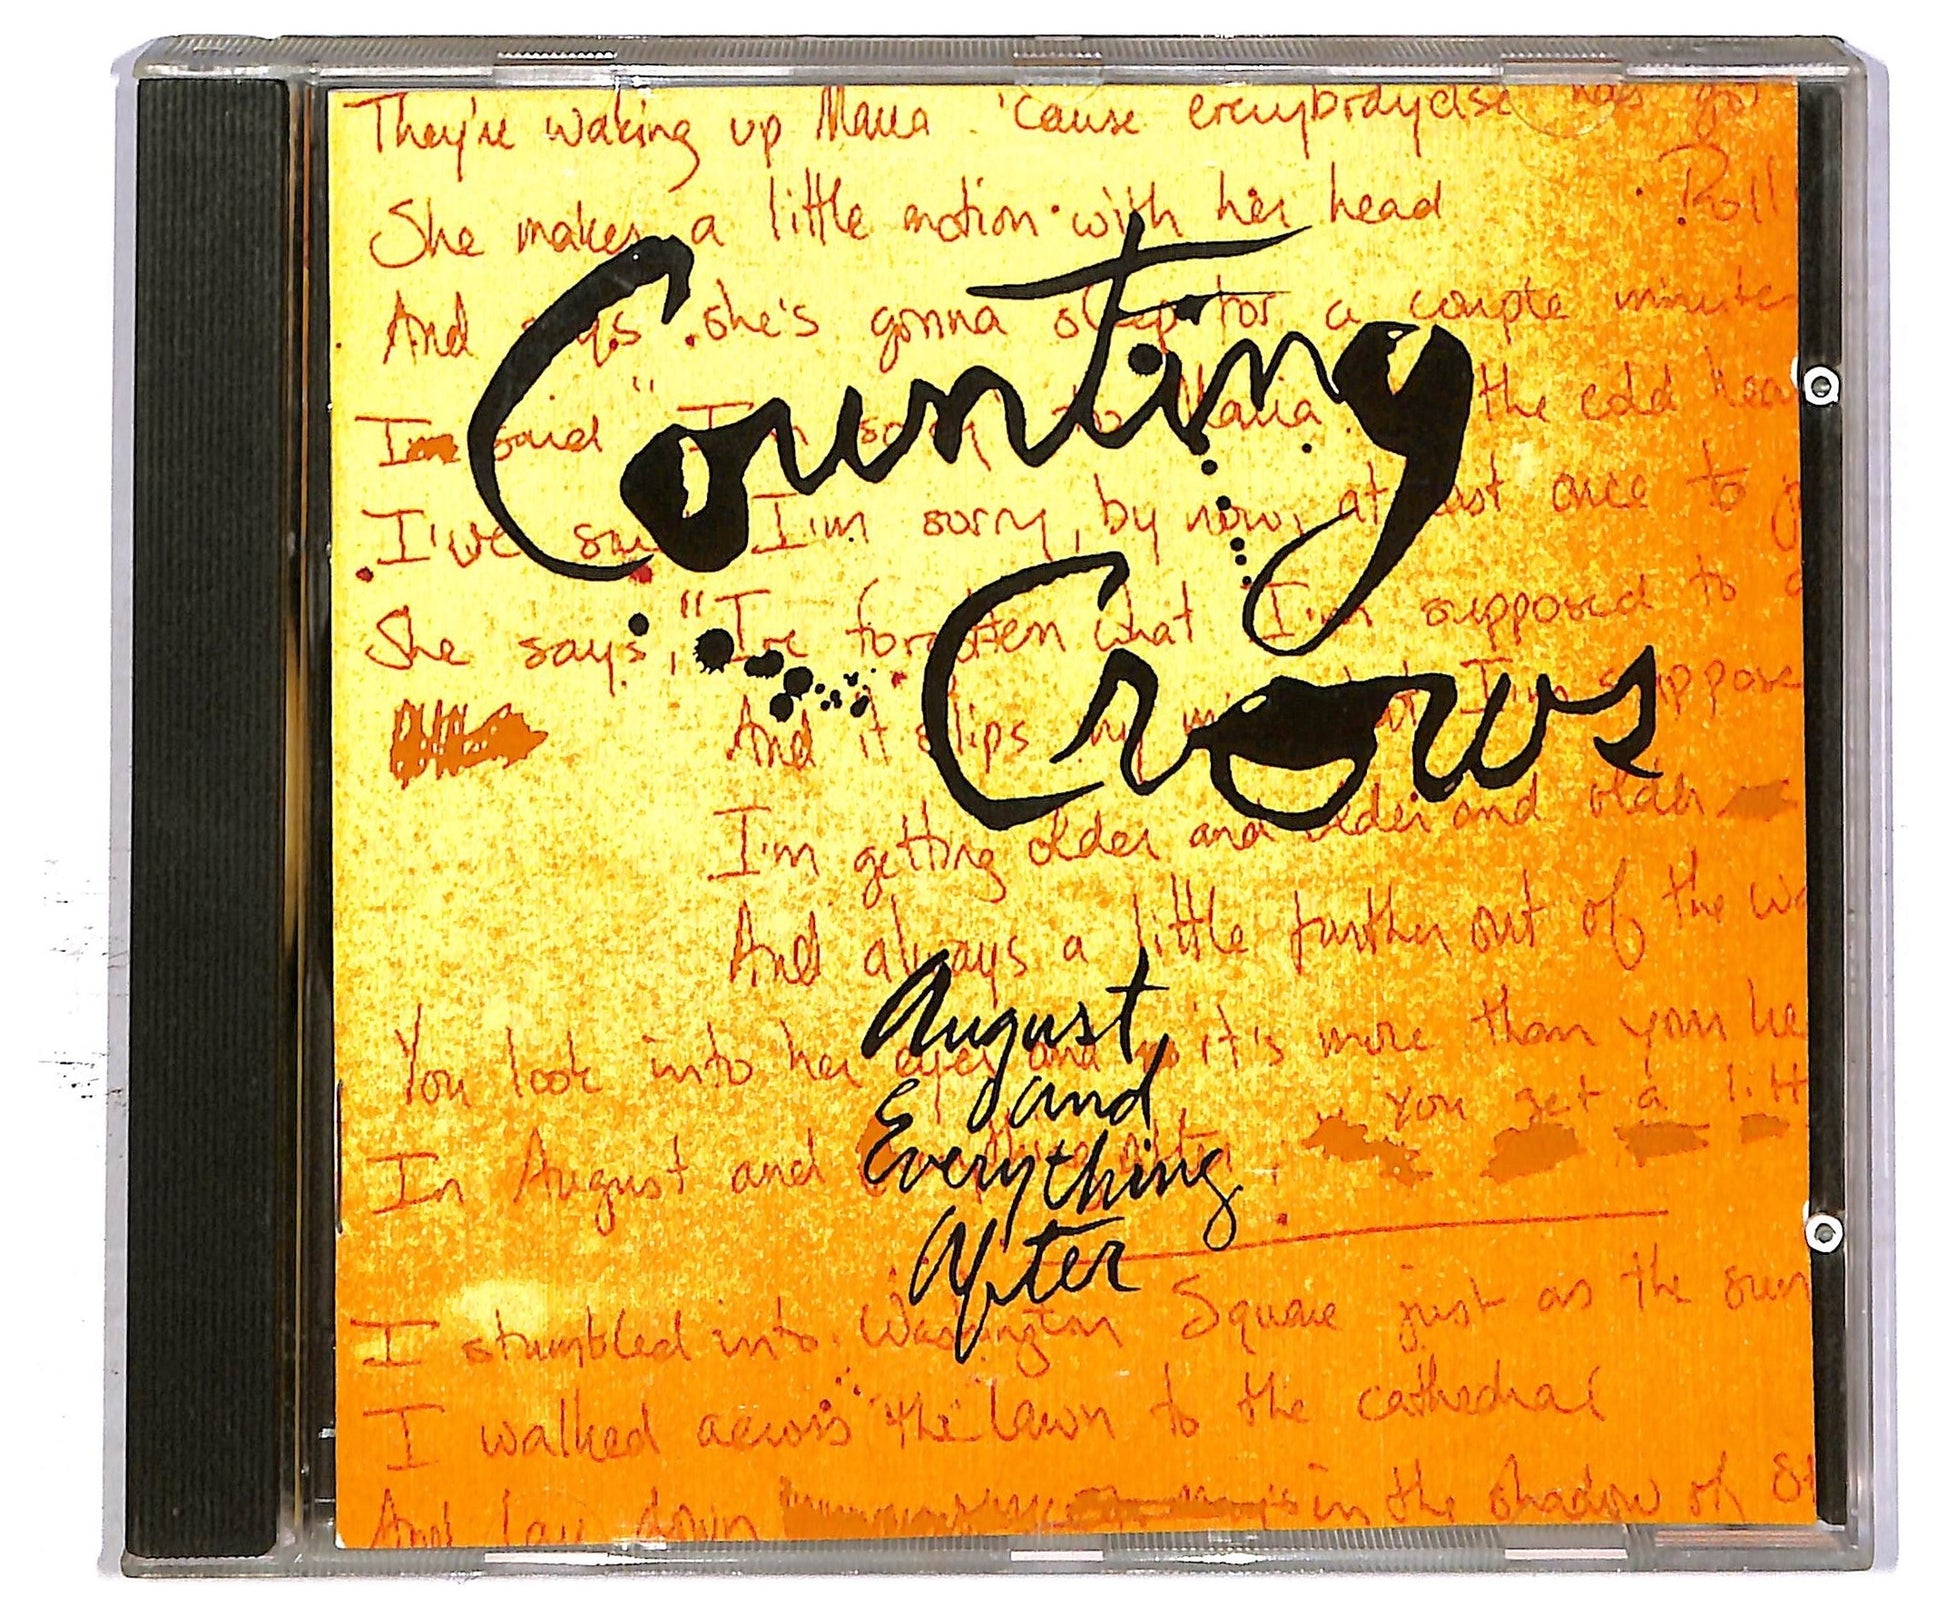 They're waking up Maria 'cause everybody else has got
She makes a little motion with her head
Roll
And says she's gonna sleep for a couple minutes
Counting
I said "I'm sorry to Maria the cold
I've said I'm sorry, by now, at least once to
Crows
She says, "I've forgotten what I'm supposed to
And it slips my mind I'm suppose
I'm getting older and older and older
And always a little further out of the wa
August
and
Everything
After
You look into her eyes and it's more than your he
You get a litt
In August and everything after,
I stumbled into Washington Square just as the sun
I walked across the lawn to the cathedral
And lay down in the shadow of St